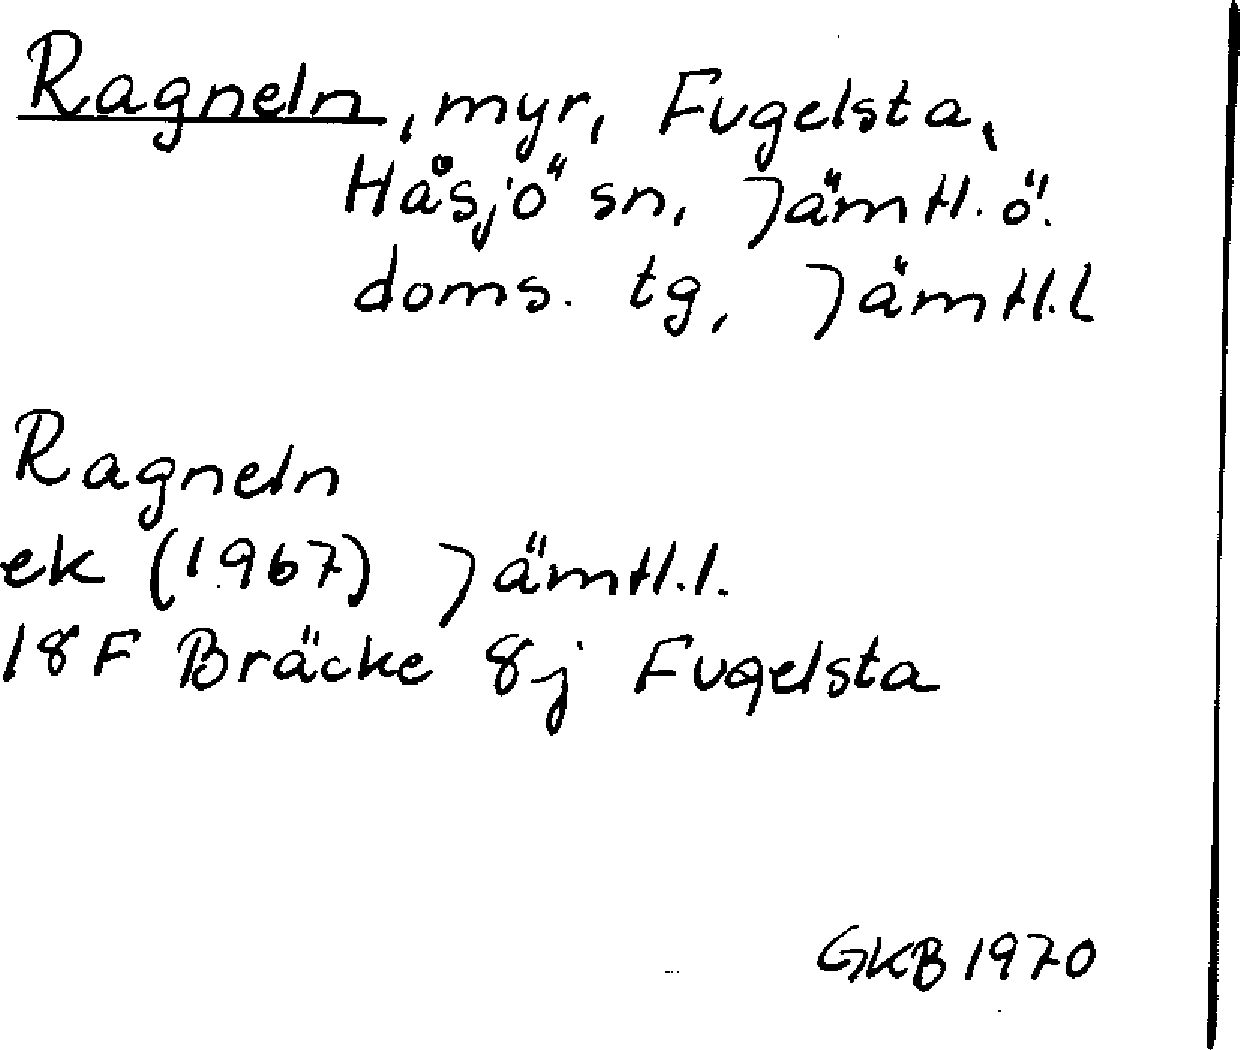 Ragneln, myr, Fugelsta,
Håsjö sn, Jämtl. ö.
doms. tg, Jämtl. l
Ragneln
ek (1967) Jämtl. l.
18F Bräcke 8j Fugelsta
GKB 1970